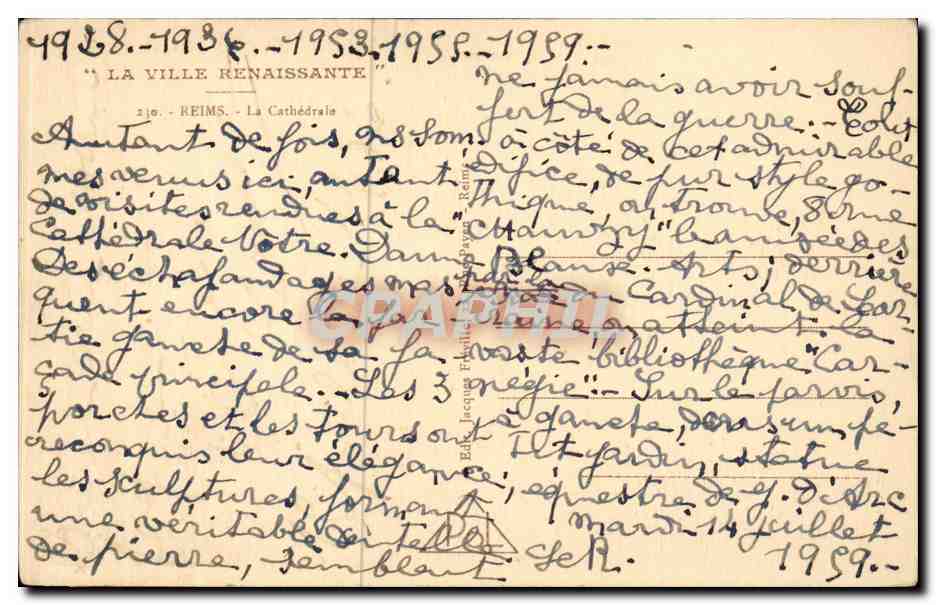 1928.-1936.-1953.1955.-1959.-
"LA VILLE RENAISSANTE"
210. - REIMS. - La Cathédrale
Autant de fois, ns som-
mes venus ici, autant
de visites rendues à la
Cathédrale Notre-Dame
Des échafaudages mas-
quent encore la par-
tie gauche de sa fa-
çade principale. - Les 3
porches et les Tours ont
reconquis leur élégance,
les sculptures, formant
une véritable dentelle
de pierre, semblent
ne jamais avoir souf-
fert de la guerre. - Tout
à côté de cet admirable
édifice, de pur style go-
thique, on trouve, 8 rue
"Chanzy" le musée des
Beaux-Arts; derrière
Cardinal de Lor-
raine, on atteint la
vaste bibliothèque "Car-
négie" - Sur le parvis,
à gauche, dans un pe-
tit jardin, statue
équestre de J. d'Arc
Mardi 14 juillet
1959.-
Edit. Jacques Payen - Reims
CPAPHIL